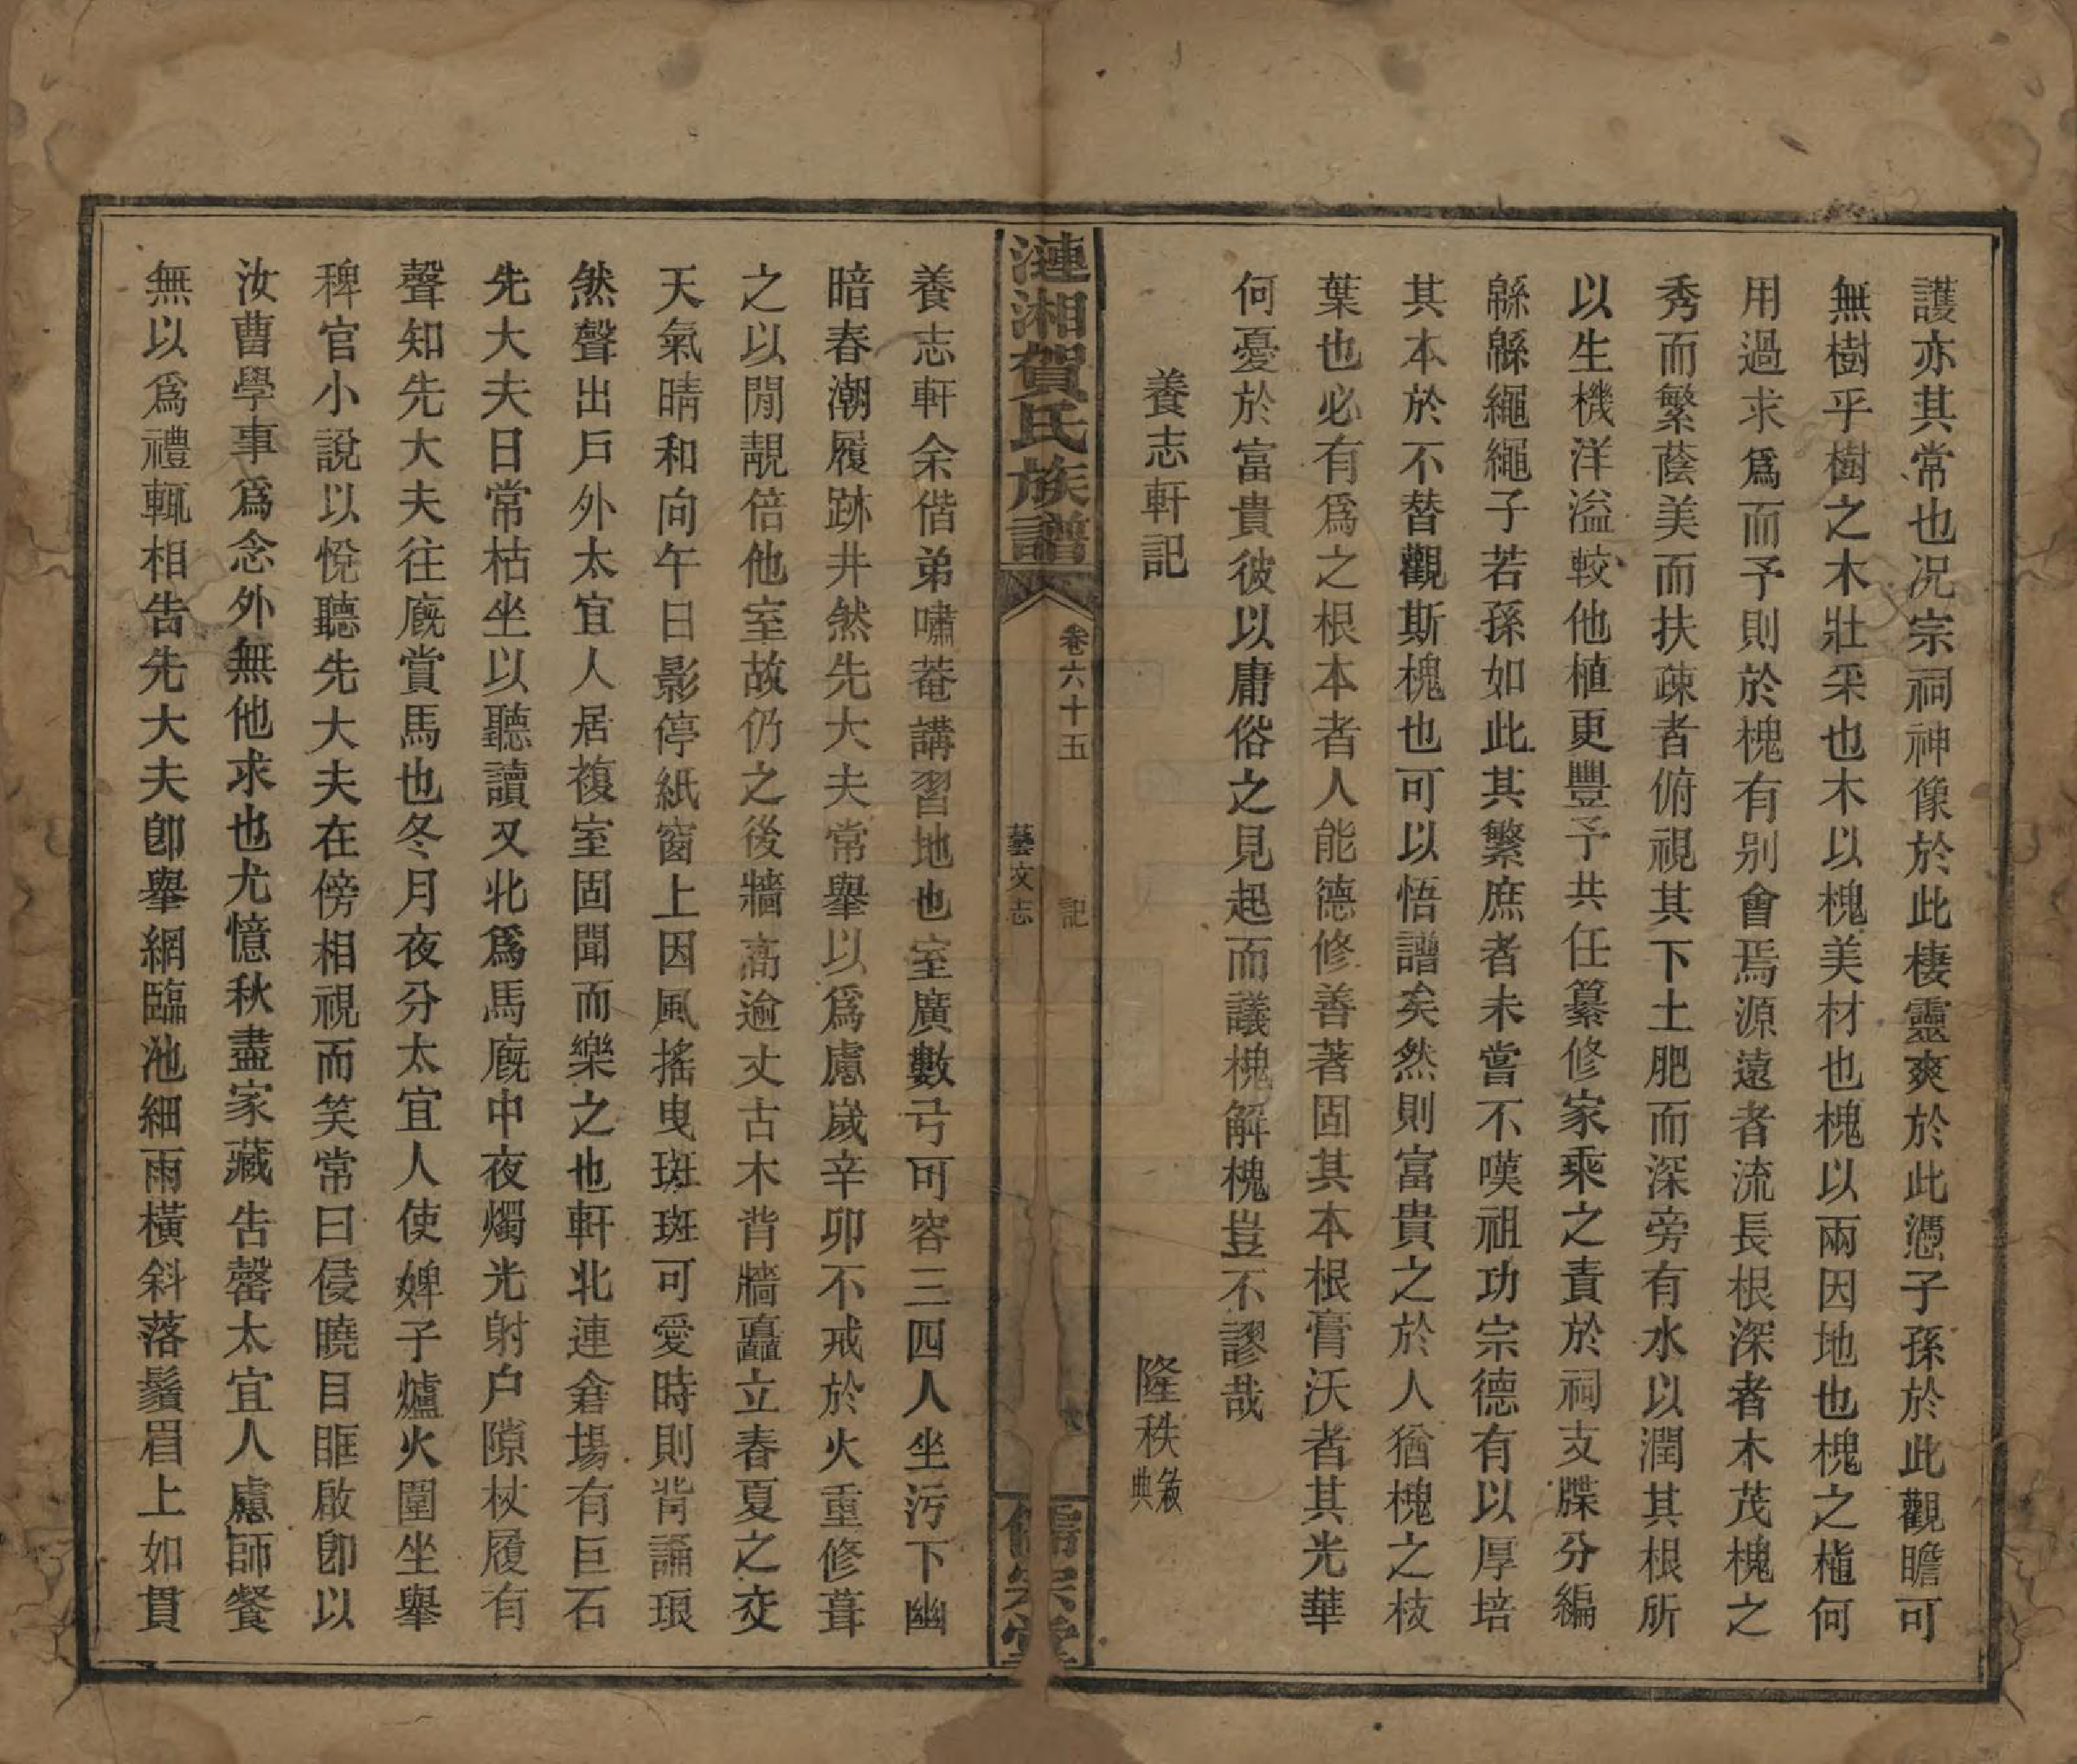 護亦其常也况宗祠神像於此棲靈爽於此憑子孫於此觀瞻可
無樹乎樹之木壯采也木以槐美材也槐以兩因地也槐之植何
用過求爲而予則於槐有别會焉源遠者流長根深者木茂槐之
秀而繁蔭美而扶疎者俯視其下土肥而深旁有水以潤其根所
以生機洋溢較他植更豐予共任纂修家乘之責於祠支牒分編
緜緜繩繩子若孫如此其繁庶者未嘗不嘆祖功宗德有以厚培
其本於不替觀斯槐也可以悟譜矣然則富貴之於人猶槐之枝
葉也必有爲之根本者人能德修善著固其本根膏沃者其光華
何憂於富貴彼以庸俗之見起而議槐解槐豈不謬哉
養志軒記 隆秩 敘典
漣湘賀氏族譜 卷六十五 記 藝文志 儒宗堂
養志軒余偕弟嘯菴講習地也室廣數弓可容三四人坐污下幽
暗春潮履跡井然先大夫常舉以爲慮嵗辛卯不戒於火重修葺
之以閒靚倍他室故仍之後牆高逾丈古木背牆矗立春夏之交
天氣晴和向午日影停紙窗上因風搖曳斑斑可愛時則背誦琅
然聲出戶外太宜人居複室固聞而樂之也軒北連倉場有巨石
先大夫日常枯坐以聽讀又北爲馬廐中夜燭光射户隙杖履有
聲知先大夫往廐賞馬也冬月夜分太宜人使婢子爐火圍坐舉
稗官小說以悅聽先大夫在傍相視而笑常曰侵曉目眶啟卽以
汝曹學事爲念外無他求也尤憶秋盡家藏告罄太宜人慮師餐
無以爲禮輒相告先大夫卽舉網臨池細雨橫斜落鬚眉上如貫